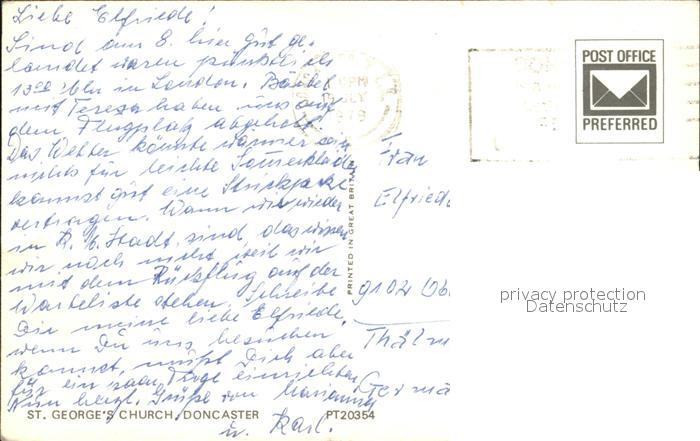 Liebe Elfriede!
Sind am 8. hier gut ge-
landet waren pünktlich
13⁰⁰ Uhr in London. Bärbel
mit Teresa haben uns auf
dem Flugplatz abgeholt.
Das Wetter könnte wärmer sein
nichts für leichte Sommerkleider
kannst gut eine Strickjacke
vertragen. Wann wir wieder
in K. M. Stadt sind, das wissen
wir noch nicht, weil wir
mit dem Rückflug auf der
Warteliste stehen. Schreibe
Dir meine liebe Elfriede,
wenn Du uns besuchen
kannst, mußt Dich aber
für ein paar Tage einrichten
Nun herzl. Grüße von Marianne
u. Karl.
ST. GEORGE'S CHURCH, DONCASTER
PT20354
PRINTED IN GREAT BRITAIN
PM
JLY
1979
POST OFFICE
PREFERRED
Frau
Elfriede
9102
Thälm
Germa
privacy protection
Datenschutz